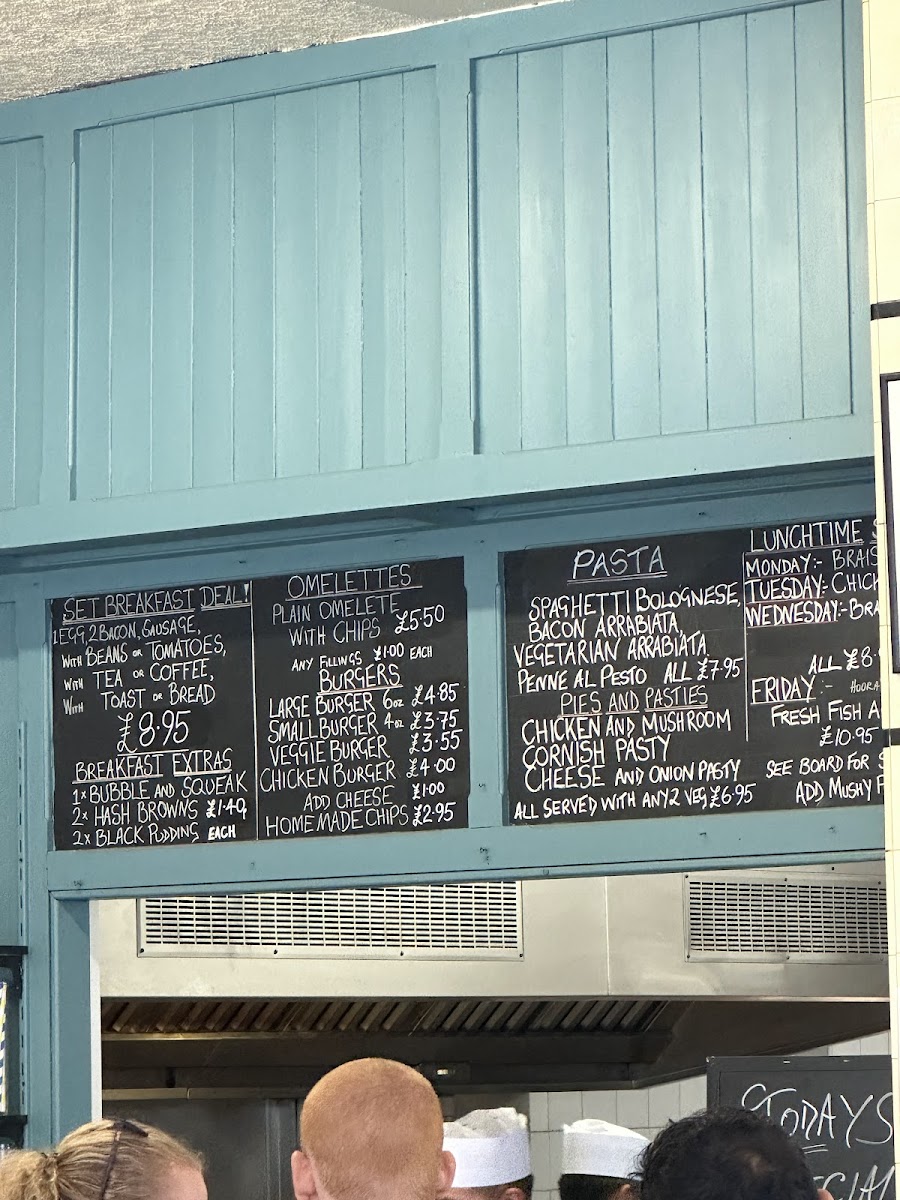 SET BREAKFAST DEAL!
1 EGG, 2 BACON, SAUSAGE,
WITH BEANS OR TOMATOES,
WITH TEA OR COFFEE,
WITH TOAST OR BREAD
£8.95
BREAKFAST EXTRAS
1x BUBBLE AND SQUEAK
2x HASH BROWNS £1.40
2x BLACK PUDDING EACH
OMELETTES
PLAIN OMELETE
WITH CHIPS £5.50
ANY FILLINGS £1.00 EACH
BURGERS
LARGE BURGER 6oz £4.85
SMALL BURGER 4oz £3.75
VEGGIE BURGER £3.55
CHICKEN BURGER £4.00
ADD CHEESE £1.00
HOME MADE CHIPS £2.95
PASTA
SPAGHETTI BOLOGNESE,
BACON ARRABIATA,
VEGETARIAN ARRABIATA
PENNE AL PESTO ALL £7.95
PIES AND PASTIES
CHICKEN AND MUSHROOM
CORNISH PASTY
CHEESE AND ONION PASTY
ALL SERVED WITH ANY 2 VEG £6.95
LUNCHTIME S
MONDAY:- BRAIS
TUESDAY:- CHICK
WEDNESDAY:- BRA
ALL £8.
FRIDAY:- HOORA
FRESH FISH A
£10.95
SEE BOARD FOR S
ADD MUSHY P
TODAYS
SPECIAL